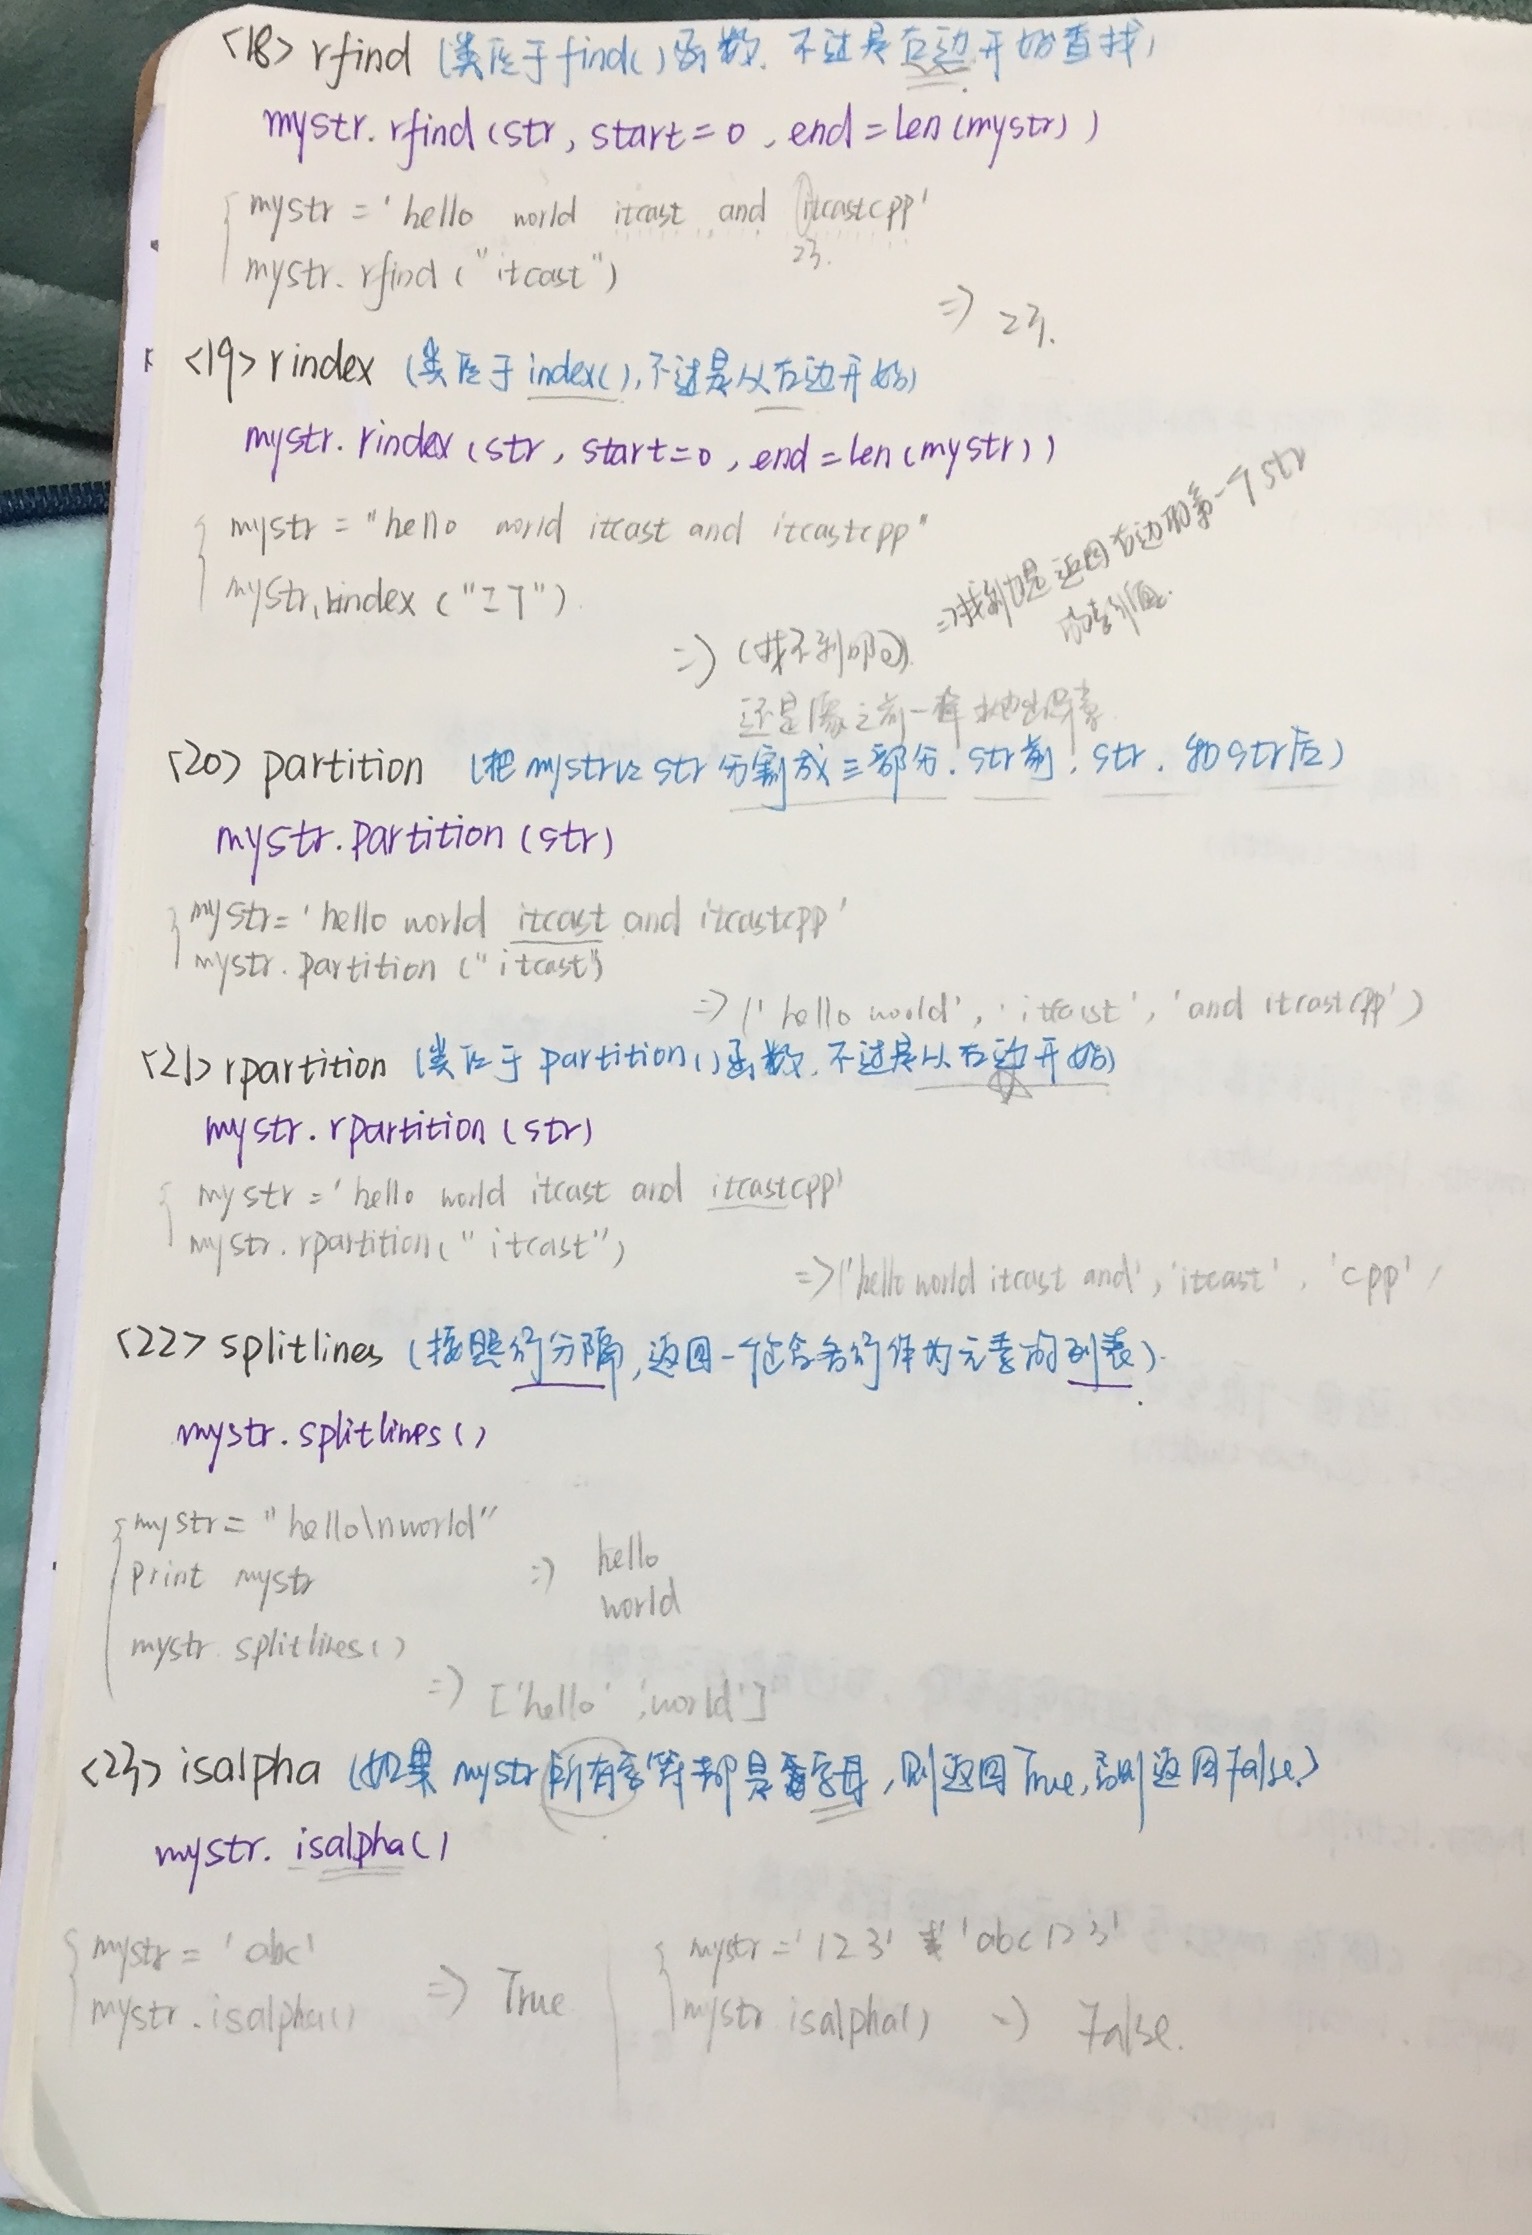 <18> rfind (类似于find()函数.不过是右边开始查找)
mystr.rfind(str, start=0, end=len(mystr))
mystr = 'hello world itcast and itcastcpp'
23.
mystr.rfind("itcast")
=> 23.
<19> rindex (类似于index(),不过是从右边开始)
mystr.rindex(str, start=0, end=len(mystr))
mystr = "hello world itcast and itcastcpp"
mystr.rindex("IT")
=> (找不到的)
=>找到是返回右边的第一个str
的索引值.
还是像之前一样
<20> partition (把mystr以str分割成三部分.str前,str,和str后)
mystr.partition(str)
mystr='hello world itcast and itcastcpp'
mystr.partition("itcast")
=> ('hello world', 'itcast', 'and itcastcpp')
<21> rpartition (类似于partition()函数.不过是从右边开始)
mystr.rpartition(str)
mystr='hello world itcast and itcastcpp'
mystr.rpartition("itcast")
=>('hello world itcast and', 'itcast', 'cpp')
<22> splitlines (按照行分隔,返回一个包含各行作为元素的列表).
mystr.splitlines()
mystr= "hello\nworld"
print mystr => hello
world
mystr.splitlines()
=> ['hello', 'world']
<23> isalpha (如果 mystr所有字符都是字母,则返回True,否则返回False.)
mystr.isalpha()
mystr = 'abc'
mystr.isalpha() => True
mystr='123' 或 'abc123'
mystr isalpha() => False.